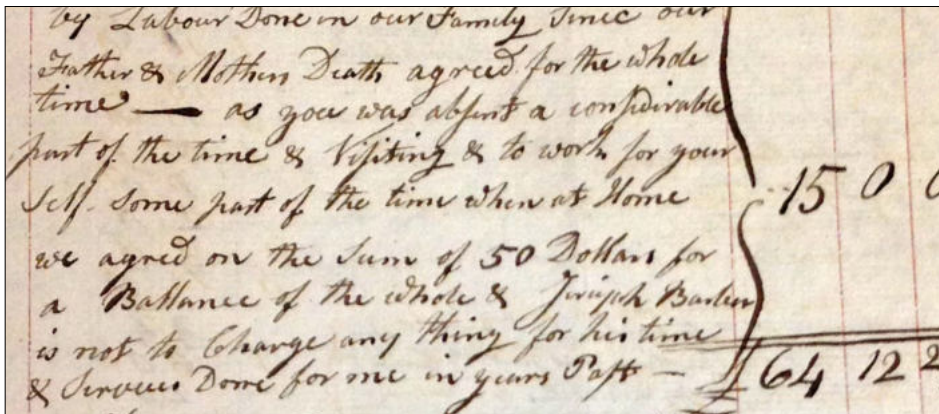 by Labour Done in our Family Since our
Father & Mothers Death agreed for the whole
time — as you was absent a considirable
part of the time & Visiting & to work for your
Self. Some part of the time when at Home
15 0 0
we agred on the Sum of 50 Dollars for
a Ballance of the whole & Barker
is not to Charge any thing for his time
& Services Done for me in years Past —
64 12 2